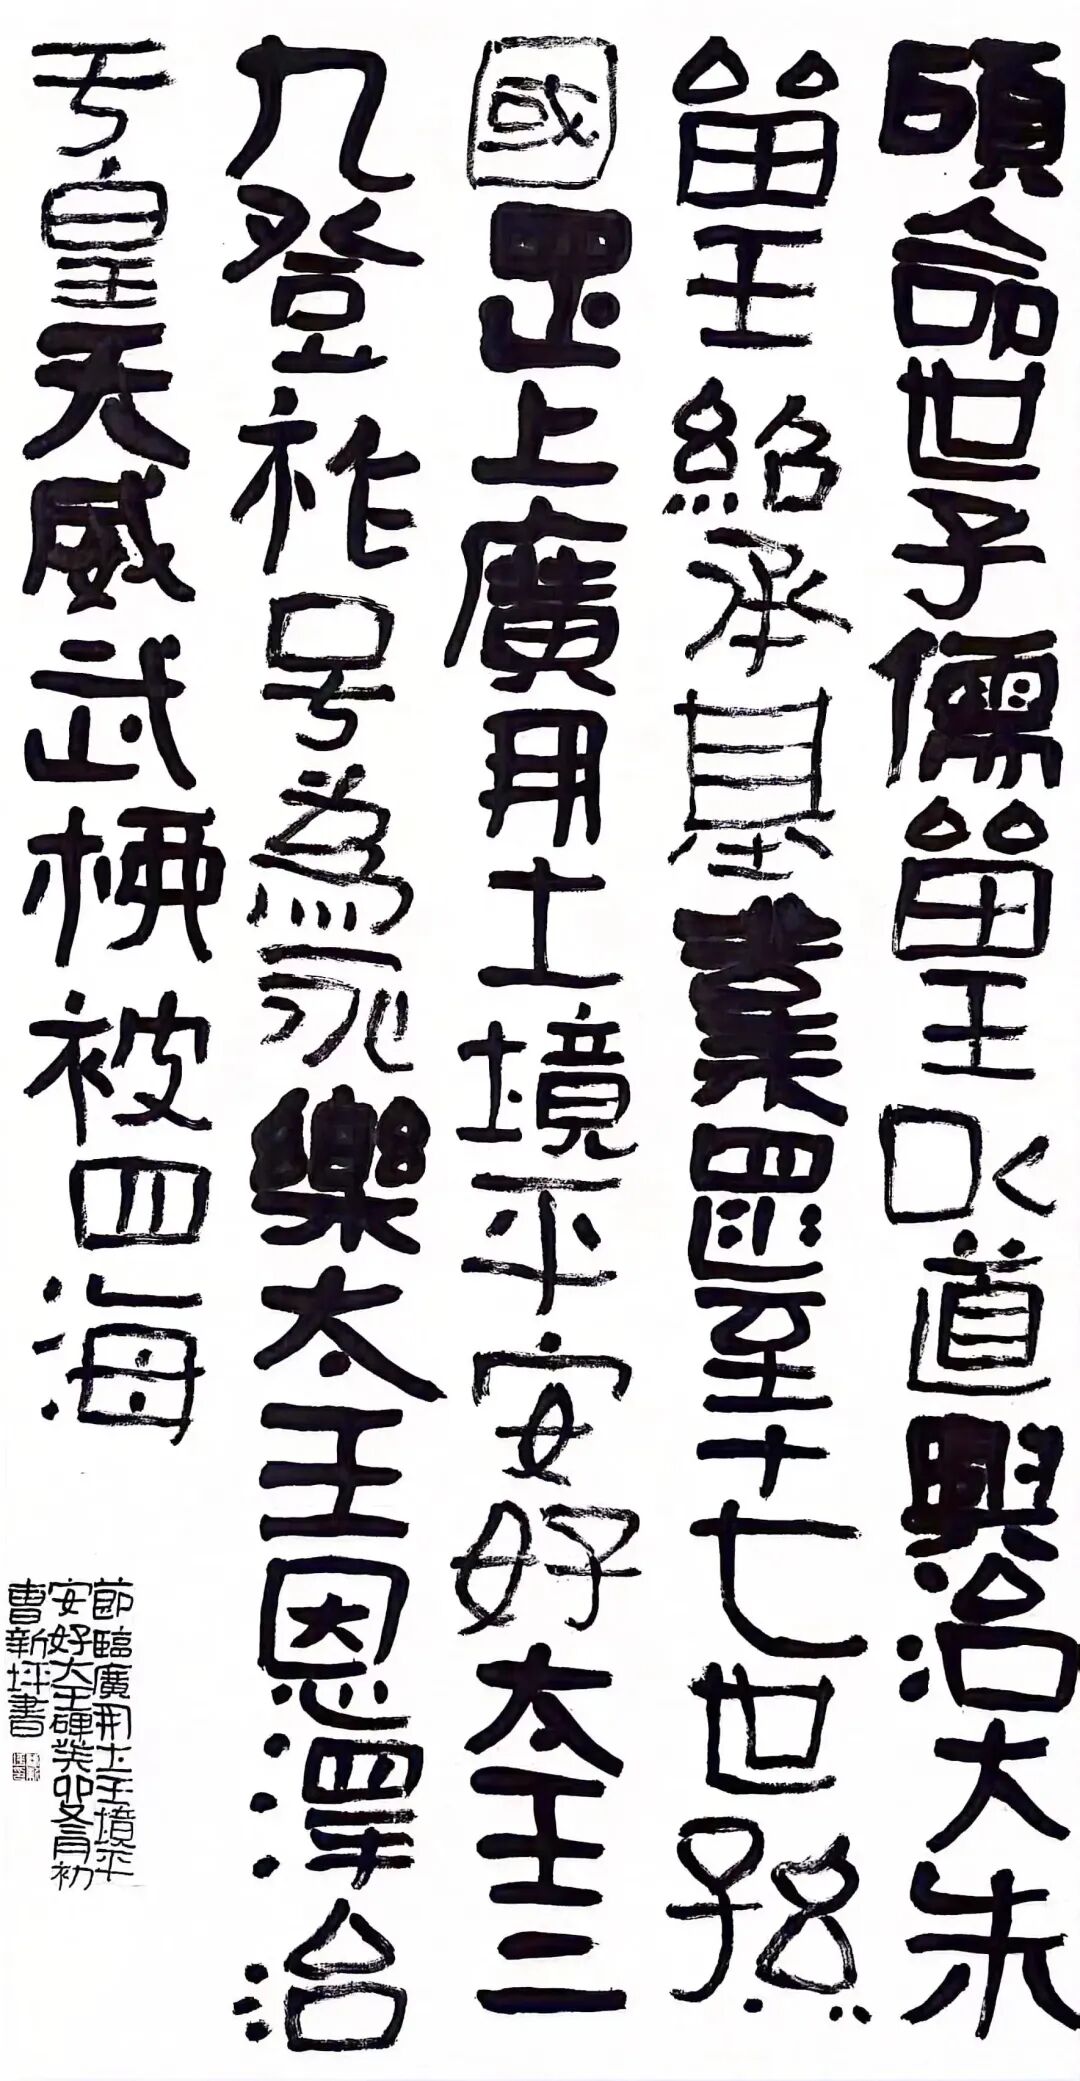 顧命世子儒留王以道興治大朱
留王紹承基業遝至十七世孫
國罡上廣開土境平安好太王二
九登祚号為永樂太王恩澤洽
于皇天威武振被四海
節臨廣開土王境平
安好大王碑癸卯冬月初
曹新坪書